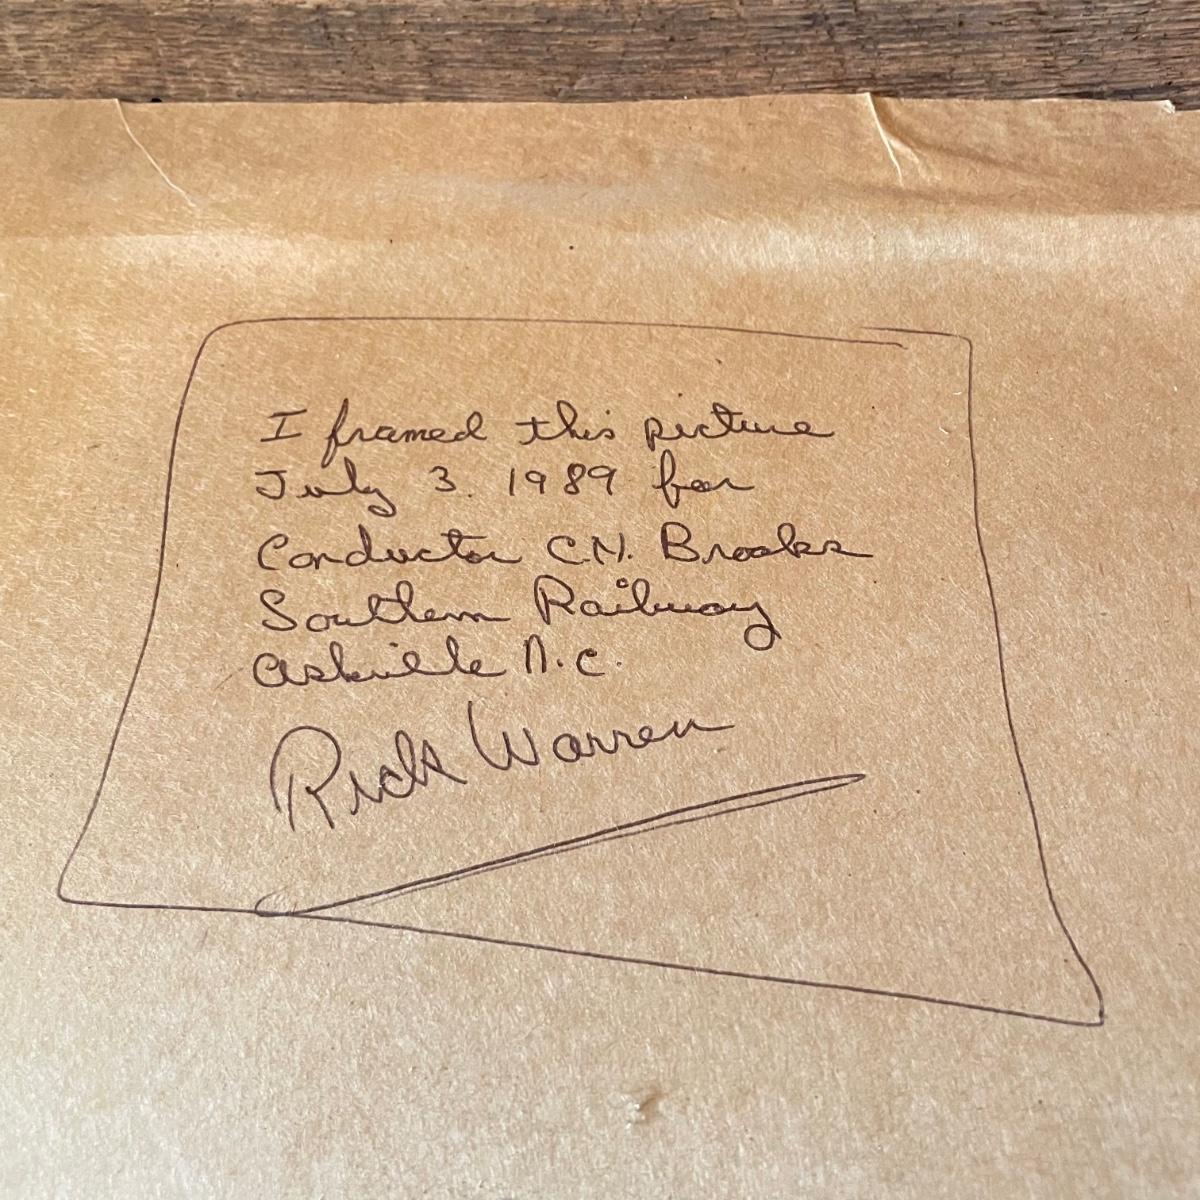 I framed this picture
July 3. 1989 for
Conductor C.N. Brooks
Southern Railway
Asheville N.C.
Rick Warren